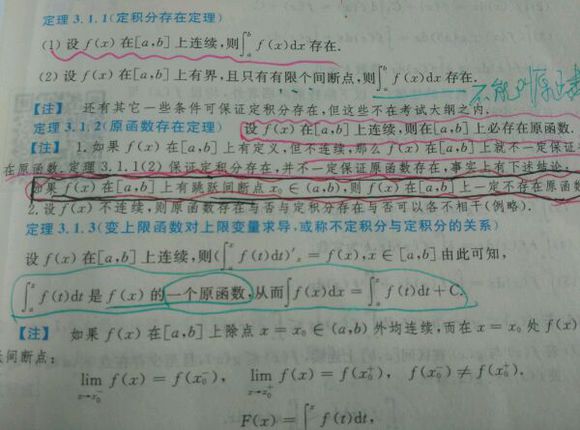 定理 3.1.1(定积分存在定理)
(1) 设 f(x) 在[a,b] 上连续,则∫ₐᵇ f(x)dx 存在.
(2) 设 f(x) 在[a,b] 上有界,且只有有限个间断点,则∫ₐᵇ f(x)dx 存在.
不能叫原函数
【注】 还有其它一些条件可保证定积分存在,但这些不在考试大纲之内.
定理 3.1.2(原函数存在定理) 设 f(x) 在[a,b] 上连续,则在[a,b] 上必存在原函数.
【注】 1. 如果 f(x) 在[a,b] 上有定义,但不连续,那么 f(x) 在[a,b] 上就不一定保证
在原函数. 定理 3.1.1(2) 保证定积分存在,并不一定保证原函数存在,事实上有下述结论
如果 f(x) 在[a,b] 上有跳跃间断点 x₀ ∈ (a,b),则 f(x) 在[a,b] 上一定不存在原函数
2. 设 f(x) 不连续,则原函数存在与否与定积分存在与否可以各不相干(例略).
定理 3.1.3(变上限函数对上限变量求导,或称不定积分与定积分的关系)
设 f(x) 在[a,b] 上连续,则(∫ₐˣ f(t)dt)′ₓ = f(x), x ∈ [a,b] 由此可知,
∫ₐˣ f(t)dt 是 f(x) 的一个原函数,从而∫f(x)dx = ∫ₐˣ f(t)dt + C.
【注】 如果 f(x) 在[a,b] 上除点 x = x₀ ∈ (a,b) 外均连续,而在 x = x₀ 处 f(x)
间断点:
lim x→x₀⁻ f(x) = f(x₀⁻), lim x→x₀⁺ f(x) = f(x₀⁺), f(x₀⁻) ≠ f(x₀⁺).
F(x) = ∫ˣ f(t)dt,